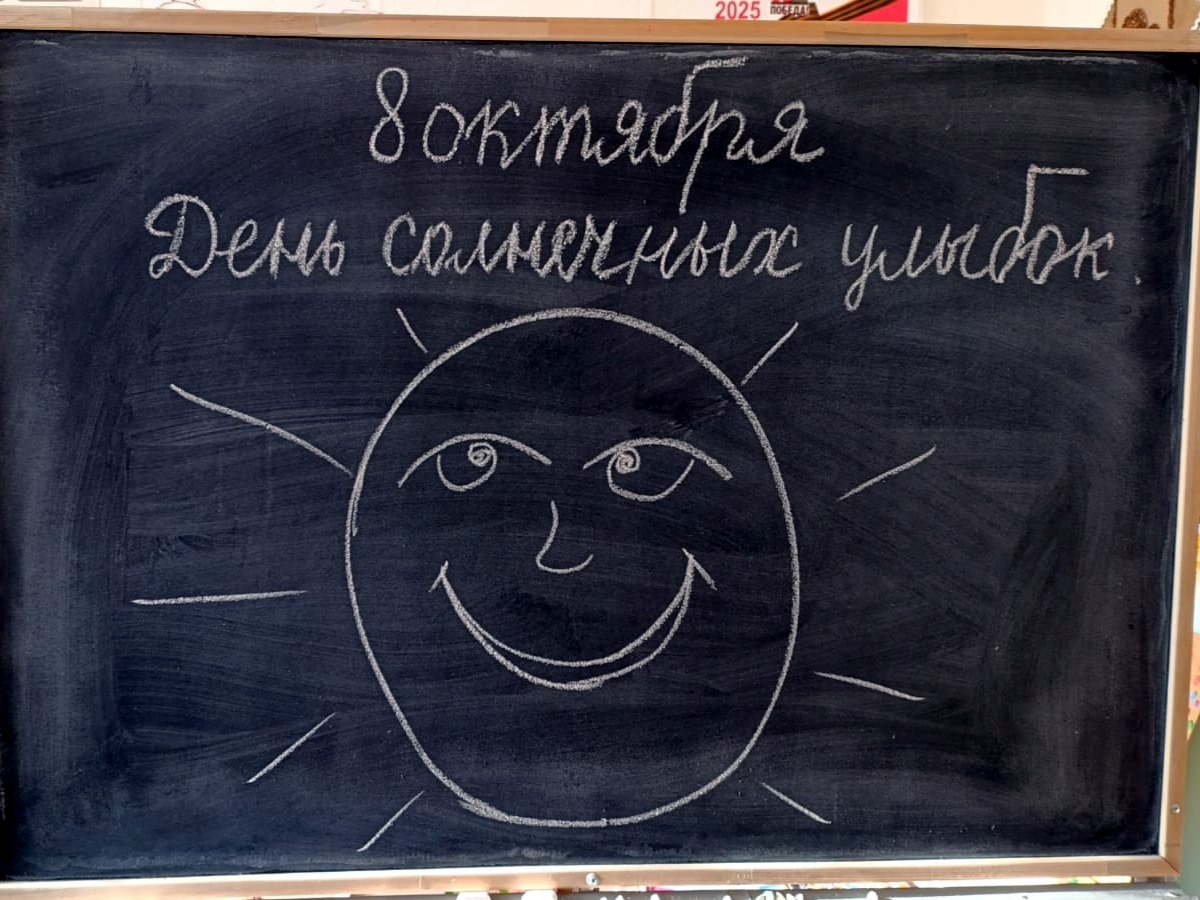 2025 ПОБЕДА!
8 октября
День солнечных улыбок.